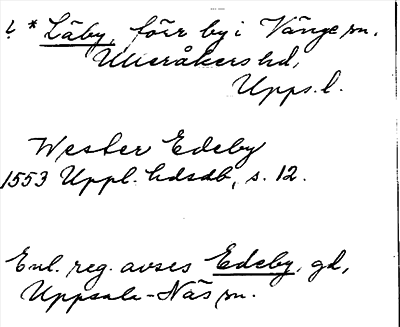 ? * Läby, förr by i Vänge sn.
Ulleråkers hd,
Upps. l.
Wester Edeby
1553 Uppl. hdsdb, s. 12.
Enl. reg. avses Edeby, gd,
Uppsala-Näs sn.